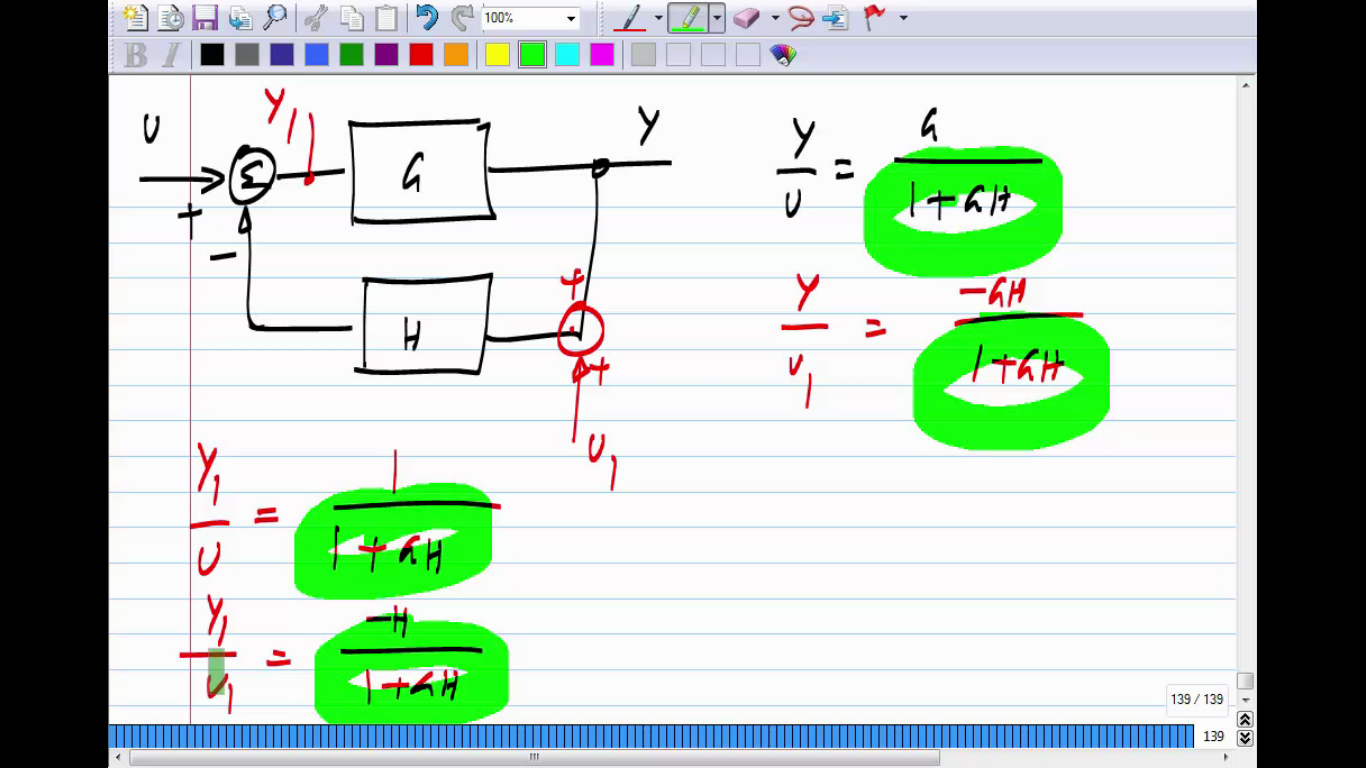 100%
B I
U
+
−
Σ
Y1
G
Y
H
+
+
U1
Y/U = G/(1+GH)
Y/U1 = −GH/(1+GH)
Y1/U = 1/(1+GH)
Y1/U1 = −H/(1+GH)
139 / 139
139